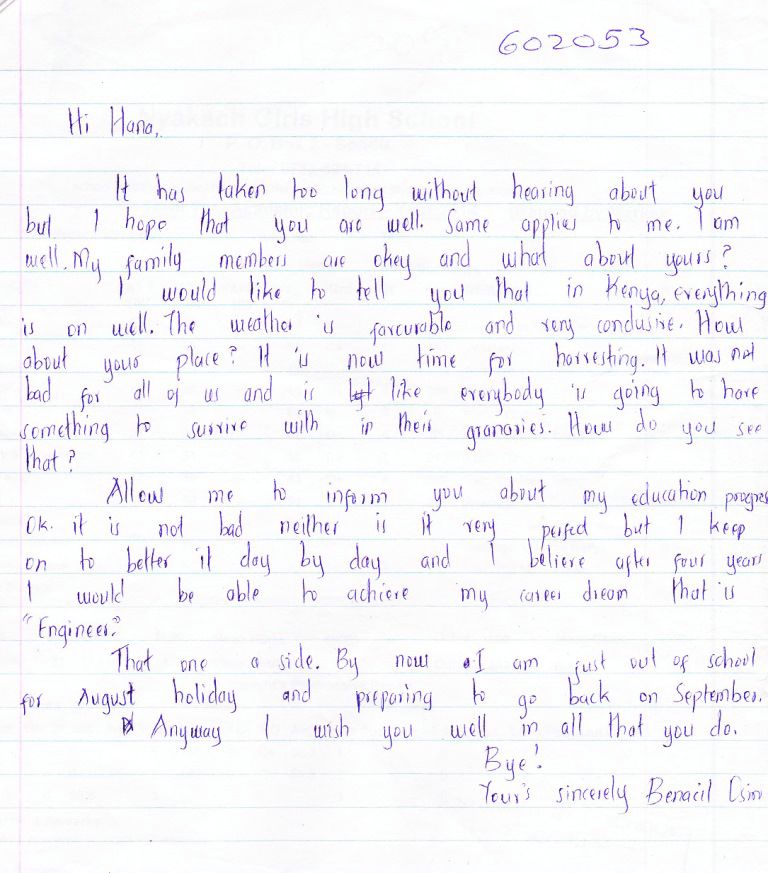 602053
Hi Hana,
It has taken too long without hearing about you
but I hope that you are well. Same applies to me. I am
well. My family members are okey and what about yours?
I would like to tell you that in Kenya, everything
is on well. The weather is favourable and very condusive. How
about your place? It is now time for harvesting. It was not
bad for all of us and is like everybody is going to have
something to survive with in their granaries. How do you see
that?
Allow me to inform you about my education progres
Ok. it is not bad neither is it very perfect but I keep
on to better it day by day and I believe after four years
I would be able to achieve my career dream that is
"Engineer."
That one a side. By now I am just out of school
for August holiday and preparing to go back on September.
Anyway I wish you well in all that you do.
Bye!
Your's sincerely Benacil